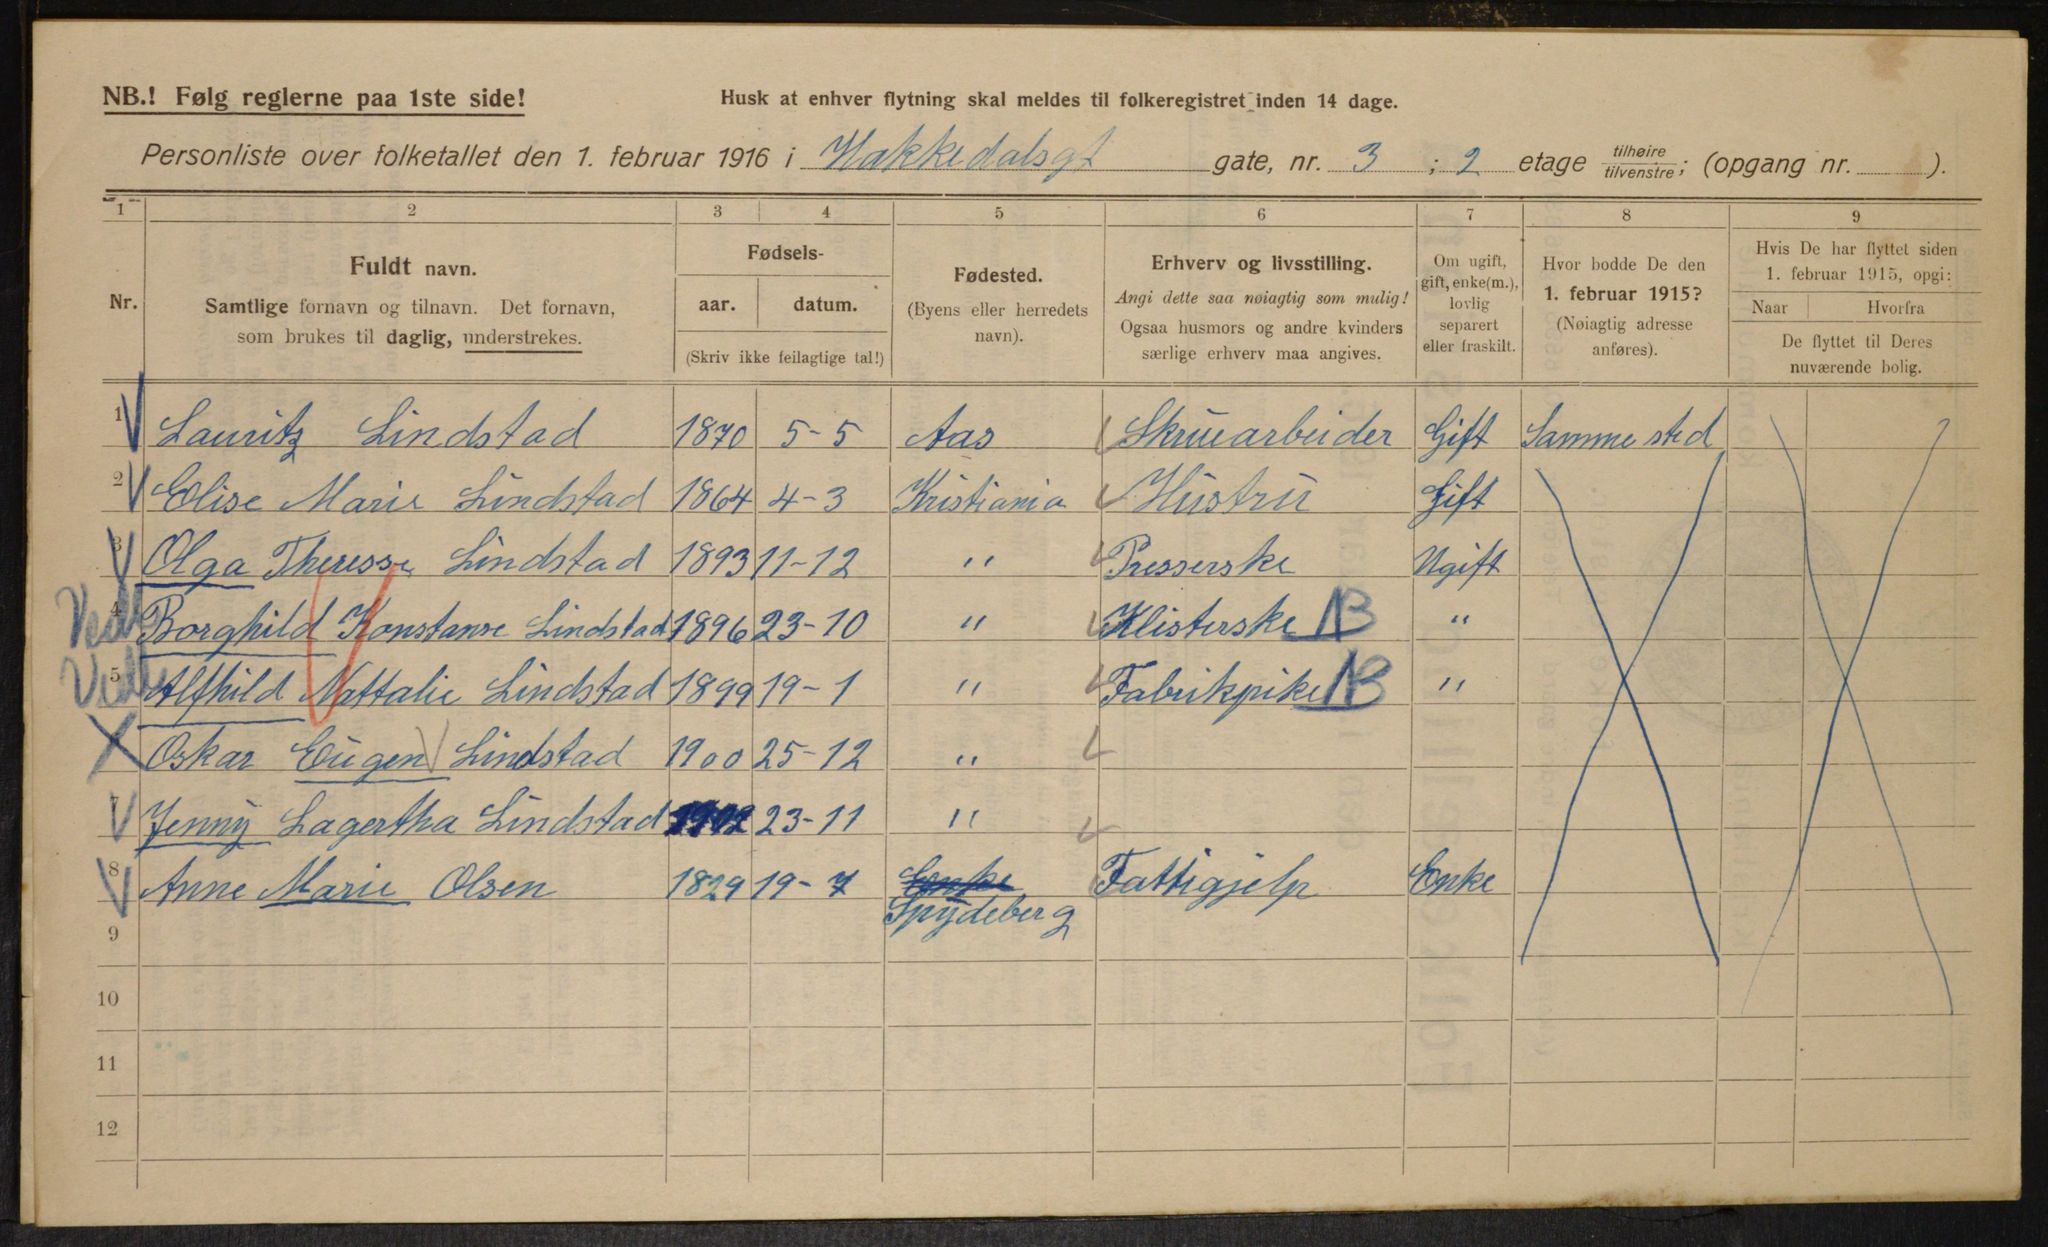 NB.! Følg reglerne paa 1ste side!
Husk at enhver flytning skal meldes til folkeregistret inden 14 dage.
Personliste over folketallet den 1. februar 1916 i Hakkedalsgt gate, nr. 3 ; 2 etage tilhøire tilvenstre; (opgang nr. ).
1 2 3 4 5 6 7 8 9
Nr.
Fuldt navn.
Samtlige fornavn og tilnavn. Det fornavn,
som brukes til daglig, understrekes.
Fødsels-
aar. datum.
(Skriv ikke feilagtige tal!)
Fødested.
(Byens eller herredets
navn).
Erhverv og livsstilling.
Angi dette saa nøiagtig som mulig!
Ogsaa husmors og andre kvinders
særlige erhverv maa angives.
Om ugift,
gift, enke(m.),
lovlig
separert
eller fraskilt.
Hvor bodde De den
1. februar 1915?
(Nøiagtig adresse
anføres).
Hvis De har flyttet siden
1. februar 1915, opgi:
Naar Hvorfra
De flyttet til Deres
nuværende bolig.
1 Lauritz Lindstad 1870 5-5 Aas Skruearbeider Gift Samme sted
2 Elise Marie Lindstad 1864 4-3 Kristiania Hustru Gift
3 Olga Theresse Lindstad 1893 11-12 " Presserske Ugift
4 Borghild Konstanse Lindstad 1896 23-10 " Klisterske NB "
5 Alfhild Nattalie Lindstad 1899 19-1 " Fabrikpike NB "
Oskar Eugen Lindstad 1900 25-12 "
7 Jenny Lagertha Lindstad 1902 23-11 "
8 Anne Marie Olsen 1829 19-7 Enke Fattigjelp Enke
Spydeberg
9
10
11
12